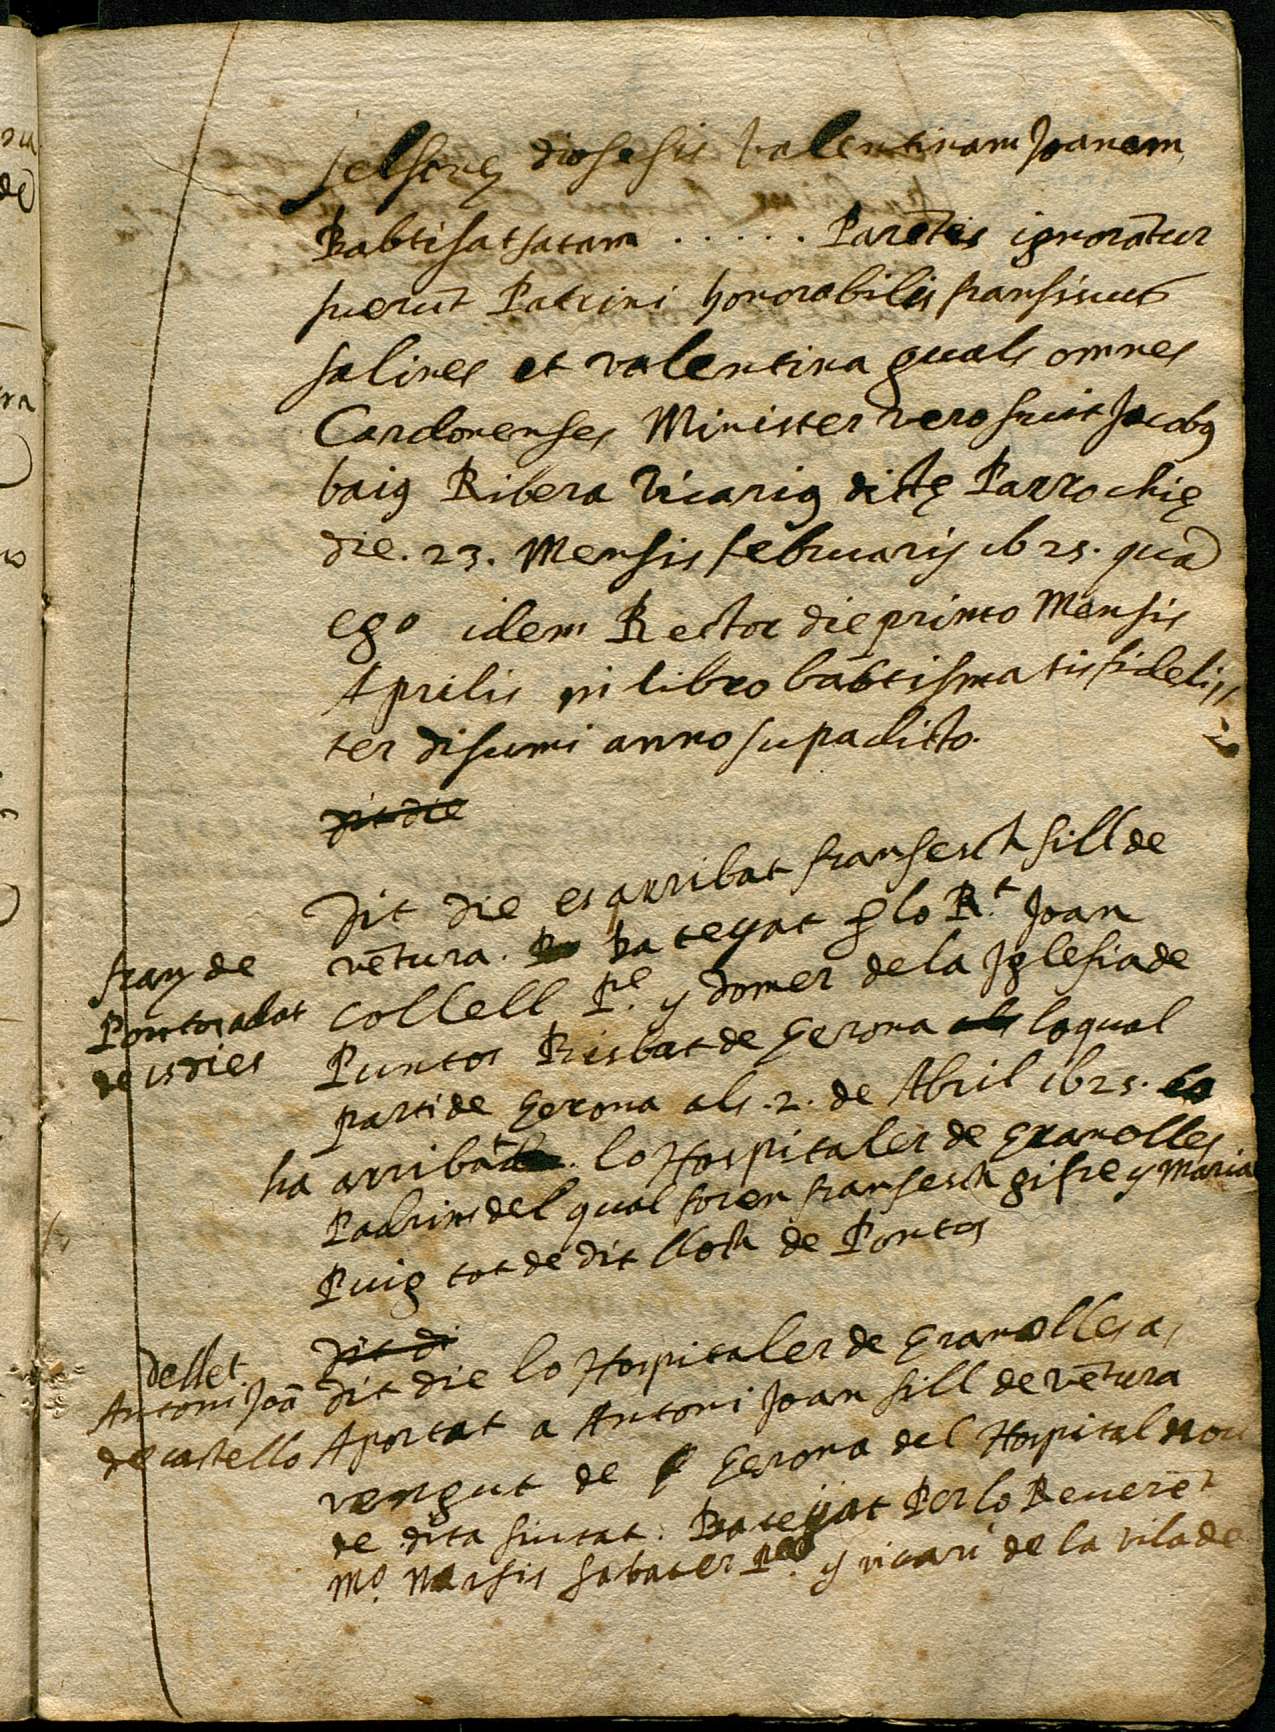 selsone diosesis Valentinam Joanam
Babtisatsatam . . . . . Parētes ignorātur
fuerūt Patrini honorabilis fransiscus
salines et valentina guals omnes
Cardonenses Minister vero fuit Jacobꝯ
baiꝯ Ribera Vicariꝯ dictę Parrochię
die. 23. Mensis februarij 1625. quā
ego idem Rector die primo Mensis
Aprilis in libro babtismatis fideli
ter disumi anno supadicto.
Dit die
Dit die es arribat fransesch fill de
vētura. Bateyat ꝑ lo R.t Joan
Collell P.e y domer de la Iglesia de
Puntos Bisbat de Gerona als loqual
parti de Gerona als .2. de Abril 1625.
ha arribat lo Hospitaler de Granolles
Padrins del qual foren fransesch gifre y Maria
Puig tot de dit lloch de Pontos
fransç de
Pontos adat
de 15 dies
Dit di
Dit die lo Hospitaler de Granolles a
Aportat a Antoni Joan fill de vētura
vengut de Gerona del Hospital nou
de dita siutat. Bateyat Per lo Reuerēt
M.o Narsis sabater P.re y vicari de la vila de
de llet.
Antoni Joā
de castello